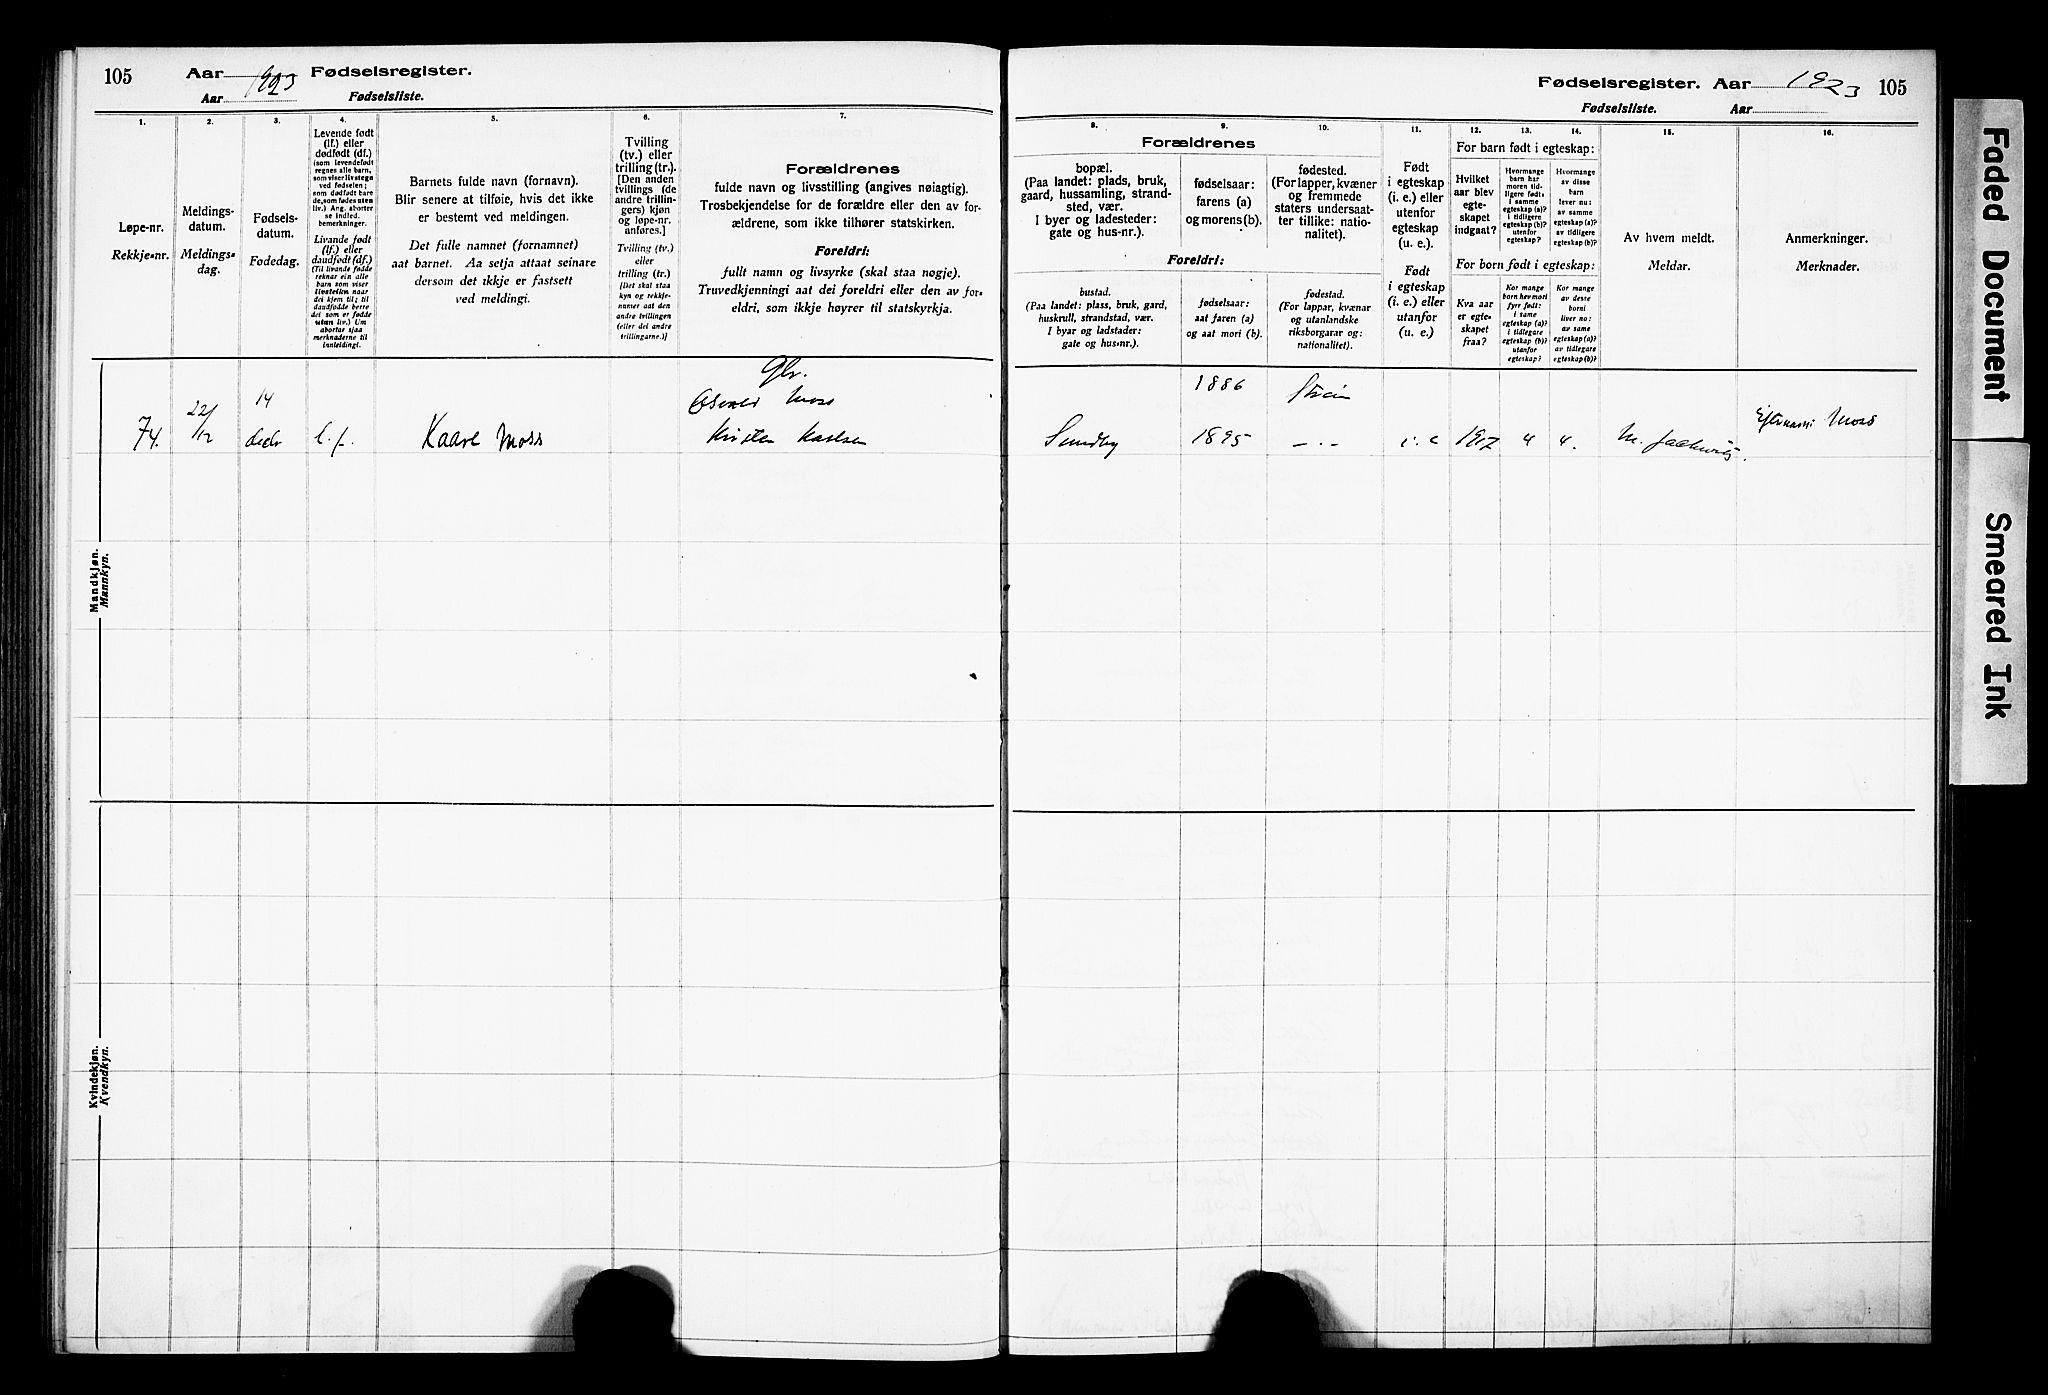 105
Aar 1923 Fødselsregister.
Aar Fødselsliste.
1.
2.
3.
4.
5.
6.
7.
Løpe-nr.
Rekkje-nr.
Meldings-
datum.
Meldings-
dag.
Fødsels-
datum.
Fødedag.
Levende født
(lf.) eller
dødfødt (df.)
(som levendefødt
regnes alle barn,
som viser livstegn
ved fødselen;
som dødfødt bare
de, som fødes uten
liv.) Ang. aborter
se indled.
bemerkninger.
Livande født
(lf.) eller
daudfødt (df.)
(Til livande fødde
reknar ein alle
barn som viser
livsteikn naar
dei kjem til; til
daudfødde berre
dei som er fødde
utan liv.) Um
abortar sjaa
merknaderne til
innleidingi.
Barnets fulde navn (fornavn).
Blir senere at tilføie, hvis det ikke
er bestemt ved meldingen.
Det fulle namnet (fornamnet)
aat barnet. Aa setja attaat seinare
dersom det ikkje er fastsett
ved meldingi.
Tvilling
(tv.) eller
trilling (tr.).
[Den anden
tvillings (de
andre trillin-
gers) kjøn
og løpe-nr.
anføres.]
Tvilling (tv.)
eller
trilling (tr.)
[Det skal staa
kyn og rekkje-
numer aat den
andre tvillingen
(eller dei andre
trillingarne.)]
Forældrenes
fulde navn og livsstilling (angives nøiagtig).
Trosbekjendelse for de forældre eller den av for-
ældrene, som ikke tilhører statskirken.
Foreldri:
fullt namn og livsyrke (skal staa nøgje).
Truvedkjenningi aat dei foreldri eller den av for-
eldri, som ikkje høyrer til statskyrkja.
Mandkjøn.
Mannkyn.
74.
22/12
14
decbr
l.f.
Kaare Moss
Gbr.
Osvald Moss
Kirsten Karlsen
Kvindekjøn.
Kvendkyn.
Fødselsregister. Aar 1923 105
Fødselsliste. Aar
8.
9.
10.
11.
12.
13.
14.
15.
16.
Forældrenes
bopæl.
(Paa landet: plads, bruk,
gaard, hussamling, strand-
sted, vær.
I byer og ladesteder:
gate og hus-nr.).
fødselsaar:
farens (a)
og morens (b).
fødested.
(For lapper, kvæner
og fremmede
staters undersaat-
ter tillike: natio-
nalitet).
Foreldri:
bustad.
(Paa landet: plass, bruk, gard,
huskrull, strandstad, vær.
I byar og ladstader:
gate og hus-nr.).
fødselsaar:
aat faren (a)
og aat mori (b).
fødestad.
(For lappar, kvænar
og utanlandske
riksborgarar og:
nationalitet).
Født
i egteskap
(i. e.) eller
utenfor
egteskap
(u. e.).
Født
i egteskap
(i. e.) eller
utanfor
(u. e.)
For barn født i egteskap:
Hvilket
aar blev
egte-
skapet
indgaat?
Hvormange
barn har
moren tid-
ligere født:
i samme
egteskap (a)?
i tidligere
egteskap (b)?
utenfor
egteskap?
Hvormange
av disse
barn
lever nu:
av samme
egteskap (a)?
av tidligere
egteskap (b)?
For born født i egteskap:
Kva aar
er egte-
skapet
fraa?
Kor mange
born hev mori
fyrr født:
i same
egteskap (a)?
i tidlegare
egteskap (b)?
utanfor
egteskap?
Kor mange
av desse
borni
liver no:
av same
egteskap (a)?
av tidlegare
egteskap (b)?
Av hvem meldt.
Meldar.
Anmerkninger.
Merknader.
1886
Sundby
1895
— " —
i. e
1917
4
4.
Efternavn: Moss
Faded Document
Smeared Ink